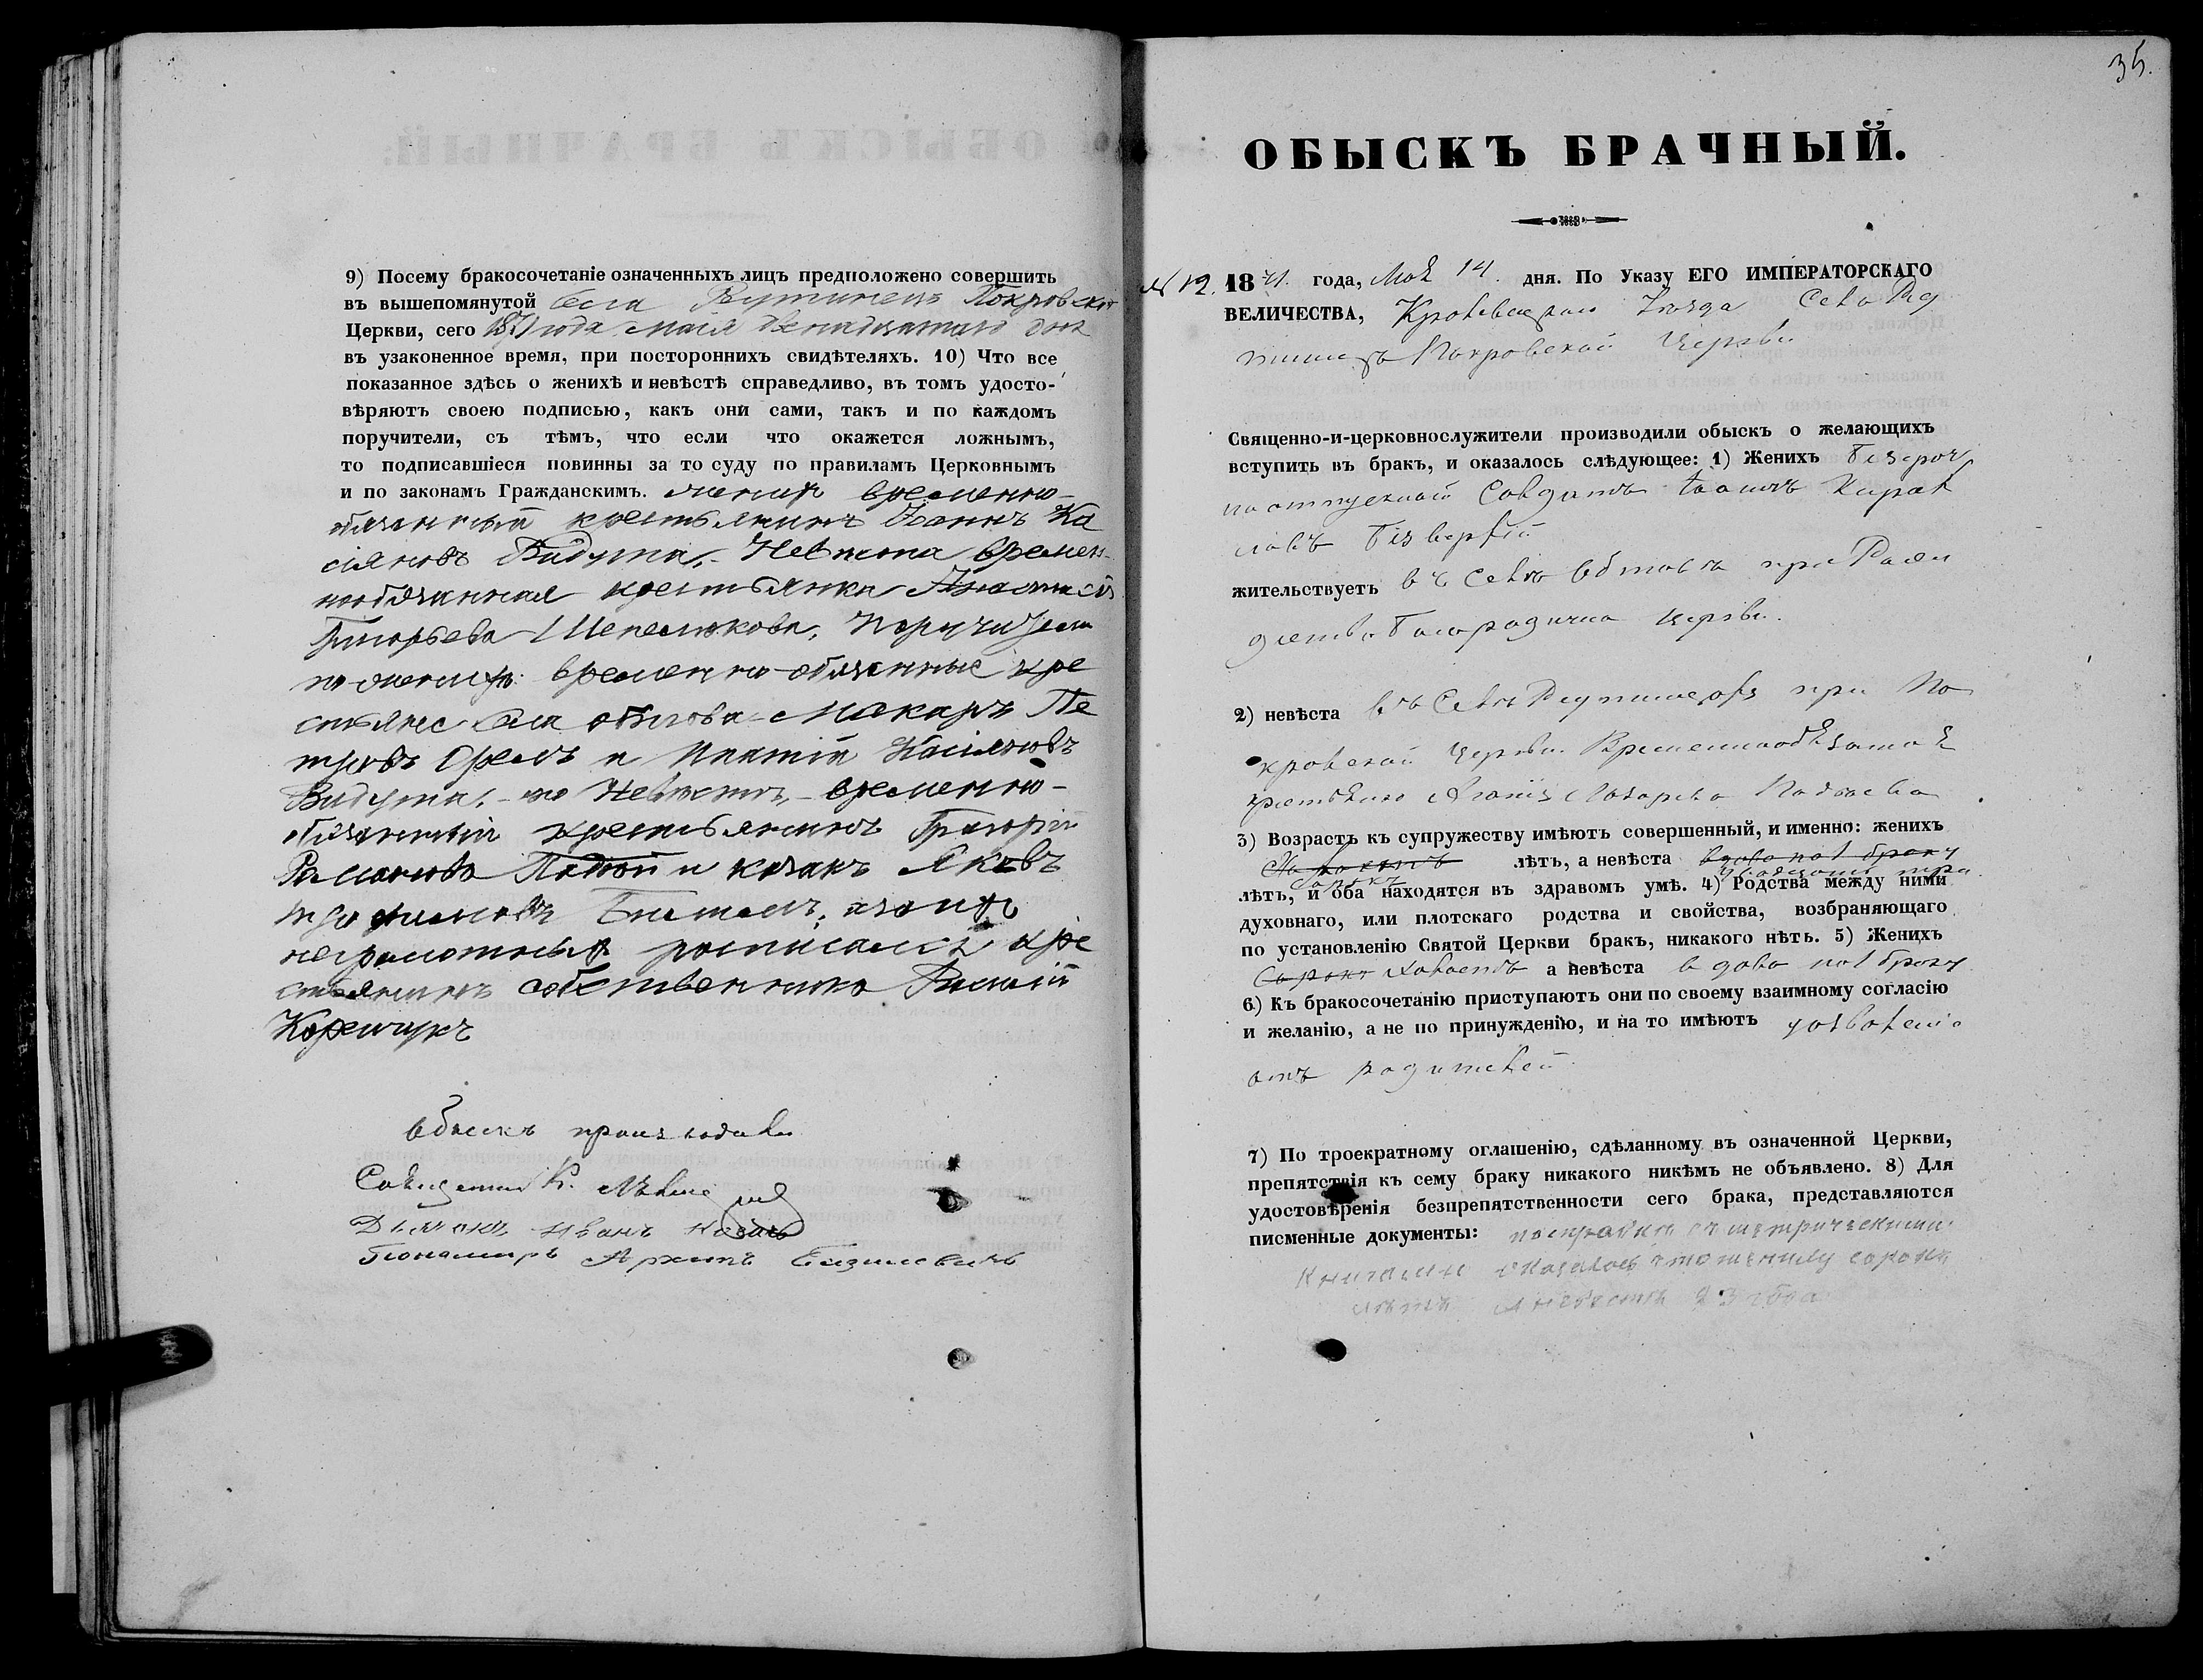 9) Посему бракосочетаніе означенныхъ лицъ предположено совершить
въ вышепомянутой села Рутинецъ Покровской
Церкви, сего 1871 года маія двенадцатаго дня
въ узаконенное время, при постороннихъ свидѣтеляхъ. 10) Что все
показанное здѣсь о женихѣ и невѣстѣ справедливо, въ томъ удосто-
вѣряютъ своею подписью, какъ они сами, такъ и по каждомъ
поручители, съ тѣмъ, что если что окажется ложнымъ,
то подписавшіеся повинны за то суду по правиламъ Церковнымъ
и по законамъ Гражданскимъ. женихъ временно-
обязанный крестьянинъ Іоаннъ Ка
сіяновъ Видута,- Невѣста времен-
нообязанная крестьянка Анастасія
Григорьева Шепелюкова, Поручители
по женихѣ: временно-обязанные кре
стьяне села Обтова Макаръ Пе
тровъ Орелъ и Игнатій Касіяновъ
Видута,- по Невѣстѣ,- временно-
обязанный крестьянинъ Григорій
Романовъ и козакъ Яковъ
Трофимовъ а за нихъ
неграмотныхъ росписался кре
стьянинъ собственникъ
Обыскъ производили
Священникъ К.
Дьячокъ Иванъ
Пономарь Архипъ Базилевичъ
35.
ОБЫСКЪ БРАЧНЫЙ.
№ 12. 1871. года, Мая 14. дня. По Указу ЕГО ИМПЕРАТОРСКАГО
ВЕЛИЧЕСТВА, Кролевецкаго Уѣзда Села Ру
тинецъ Покровской Церкви
Священно-и-церковнослужители производили обыскъ о желающихъ
вступить въ бракъ, и оказалось слѣдующее: 1) Женихъ Безсроч
но отпускной Солдатъ Іоаннъ Кирил
ловъ
жительствуетъ въ Селѣ Обтовѣ при Рожд
дество Богородична Церкви.
2) невѣста въ Селѣ Рутинцахъ при По
кровской Церкви Временнообязанная
крестьянка Агафія Назарева
3) Возрастъ къ супружеству имѣютъ совершенный, и именно: женихъ
Холостъ лѣтъ, а невѣста вдова по 1 браку
сорокъ двадцать три
лѣтъ, и оба находятся въ здравомъ умѣ. 4) Родства между ними
духовнаго, или плотскаго родства и свойства, возбраняющаго
по установленію Святой Церкви бракъ, никакого нѣтъ. 5) Женихъ
Сорокъ Холостъ а невѣста вдова по 1 браку
6) Къ бракосочетанію приступаютъ они по своему взаимному согласію
и желанію, а не по принужденію, и на то имѣютъ дозволеніе
отъ родителей
7) По троекратному оглашенію, сдѣланному въ означенной Церкви,
препятствія къ сему браку никакого никѣмъ не объявлено. 8) Для
удостовѣренія безпрепятственности сего брака, представляются
писменные документы: по справкѣ съ метрическими
Книгами оказалось что жениху сорокъ
лѣтъ а невѣстѣ 23 года